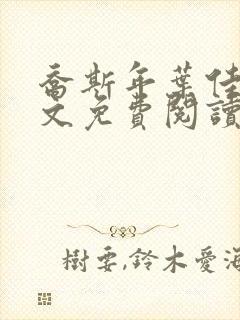 喬斯年葉佳
文免費閱讀
樹要,鈴木愛海